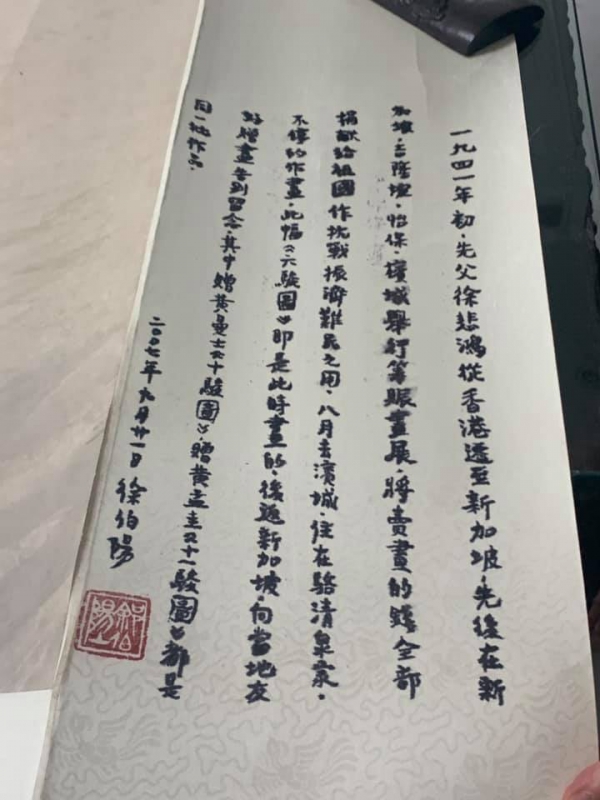 一九四一年初.先父徐悲鴻從香港返至新加坡.先後在新
加坡.吉隆坡.怡保.檳城舉行籌賑畫展.將賣畫的錢全部
捐献給祖國作抗戰振濟難民之用.八月去濱城.住在駱清泉家.
不停的作畫.此幅《六駿圖》即是此時畫的.後返新加坡.向當地友
好贈畫告别留念.其中贈黄曼士《十駿圖》.贈黄孟圭《十一駿圖》都是
同一批作品.
二〇〇七年九月廿一日徐伯陽